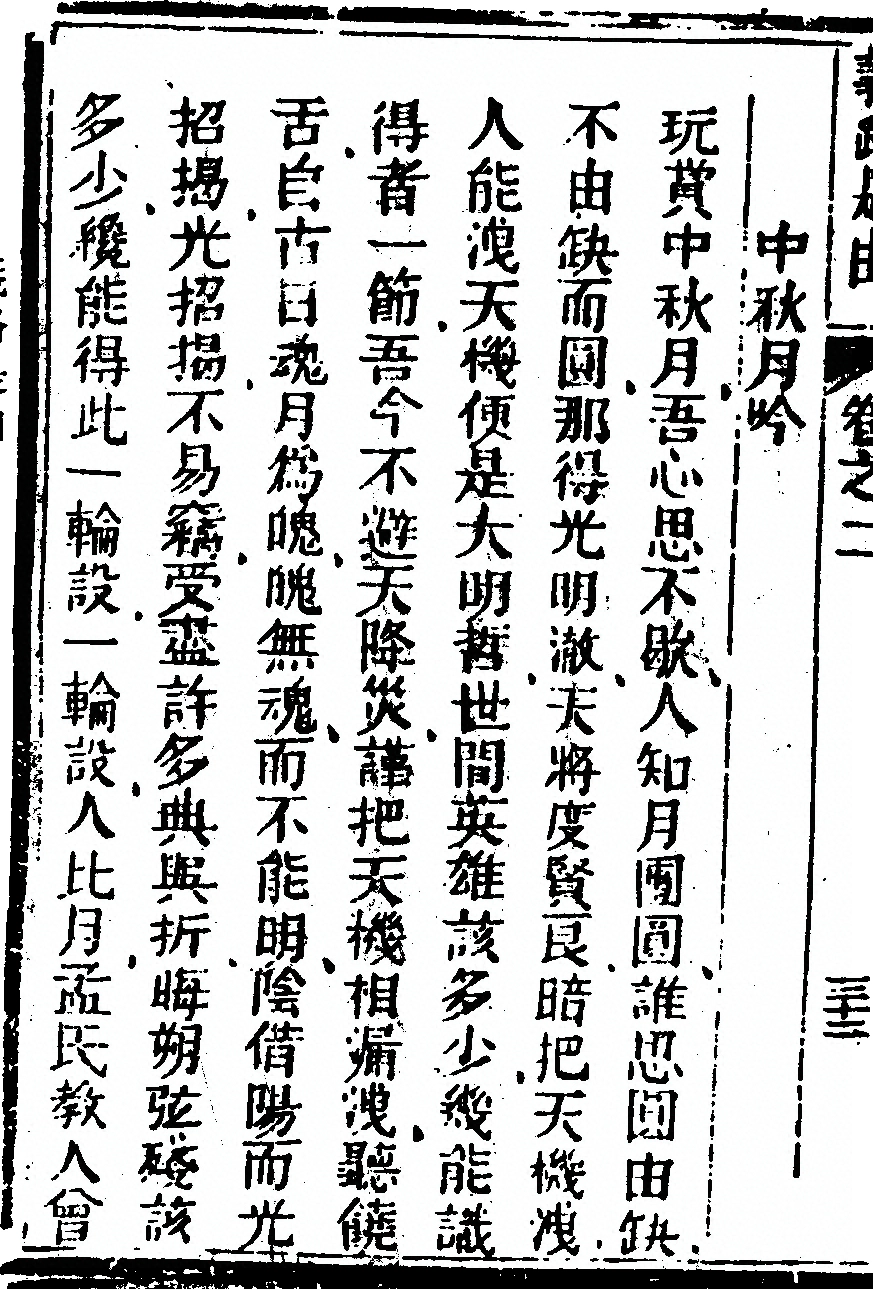 卷之二
三十三
中秋月吟
玩賞中秋月吾心思不歇人知月團圓誰思圓由缺
不由缺而圓那得光明澈天將度賢良暗把天機洩
人能洩天機便是大明哲世間英雄該多少幾能識
得者一節吾今不避天降災謹把天機相漏洩聽饒
舌自古日魂月爲魄魄無魂而不能明陰借陽而光
招揭光招揭不易竊受盡許多典與折晦朔弦殘該
多少纔能得此一輪設一輪設人比月孟氏教人曾